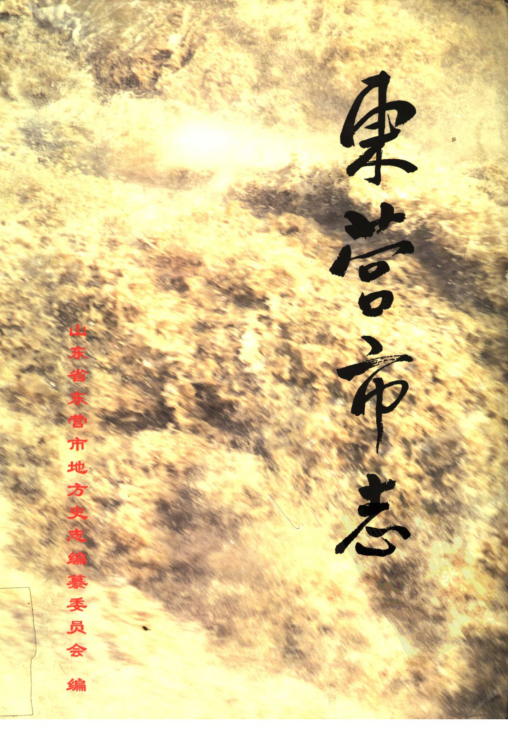 東营市志
山东省东营市地方史志编纂委员会 编